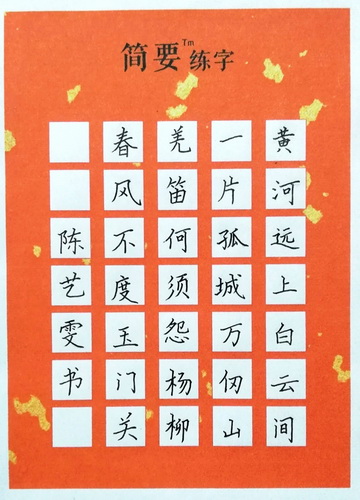 简要练字 Tm
黄河远上白云间
一片孤城万仞山
羌笛何须怨杨柳
春风不度玉门关
陈艺雯书